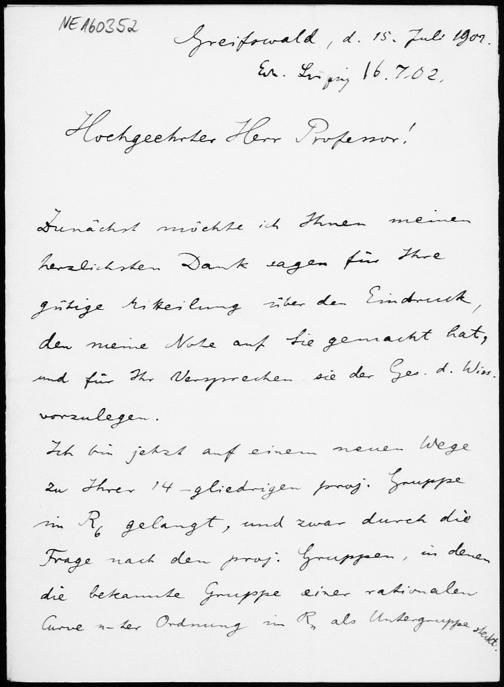 NE160352
Greifswald, d. 15. Juli 1902.
Erh. Leipzig 16.7.02.
Hochgeehrter Herr Professor!
Zunächst möchte ich Ihnen meinen
herzlichsten Dank sagen für Ihre
gütige Mitteilung über den Eindruck,
den meine Note auf Sie gemacht hat,
und für Ihr Versprechen sie der Ges. d. Wiss.
vorzulegen.
Ich bin jetzt auf einem neuen Wege
zu Ihrer 14-gliedrigen proj. Gruppe
im R₆ gelangt, und zwar durch die
Frage nach den proj. Gruppen, in denen
die bekannte Gruppe einer rationalen
Curve n-ter Ordnung im Rₙ als Untergruppe steckt.